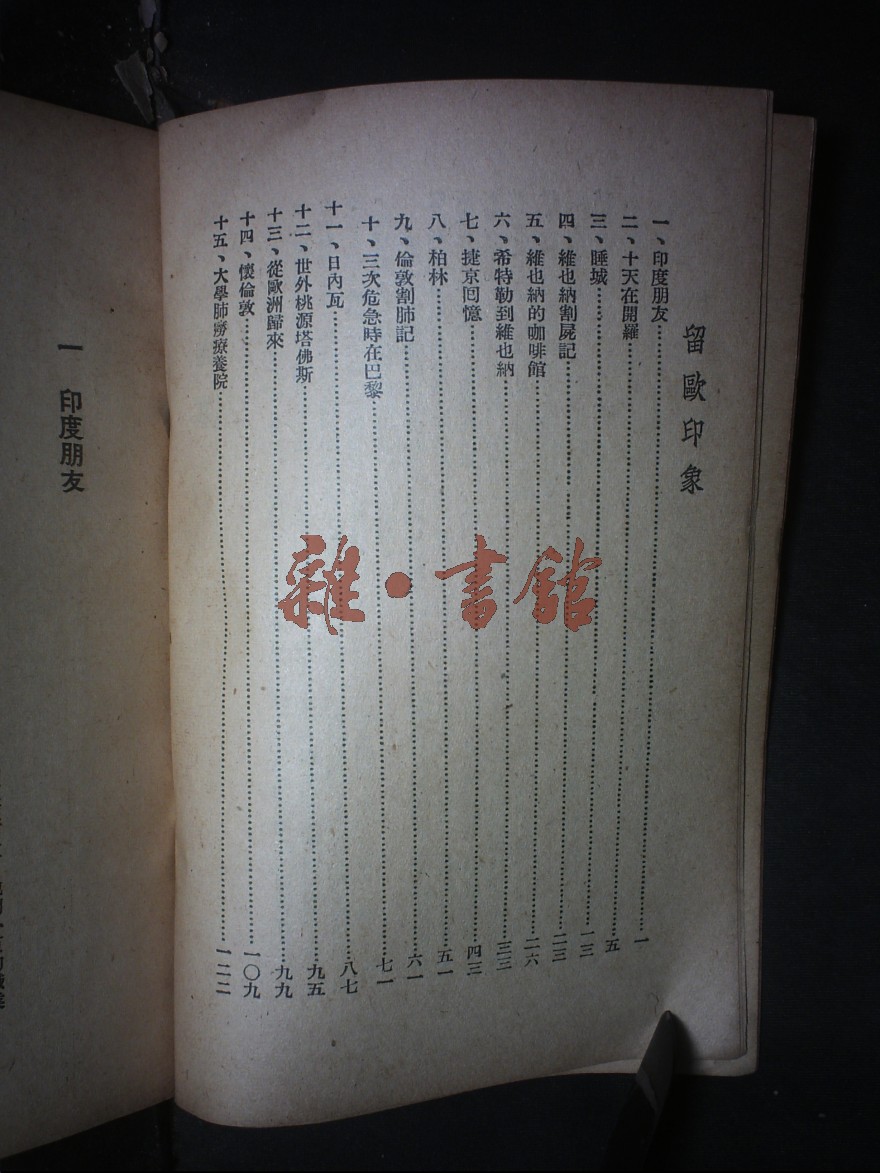 留歐印象
一、印度朋友……一
二、十天在開羅……五
三、睡城……一三
四、維也納割屍記……二三
五、維也納的咖啡館……二六
六、希特勒到維也納……三三
七、捷京回憶……四三
八、柏林……五一
九、倫敦割肺記……六一
十、三次危急時在巴黎……七一
十一、日內瓦……八七
十二、世外桃源塔佛斯……九五
十三、從歐洲歸來……九九
十四、懷倫敦……一〇九
十五、大學肺癆療養院……一二二
一 印度朋友
雜·書館